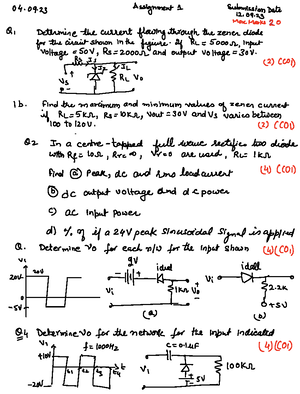 04.09.23 Assignment 1 Submission Date
12.09.23
Max Marks 20
Q1 Determine the current flowing through the zener diode
for the circuit shown in the figure. If RL = 5000Ω, input
voltage = 50V, Rs = 2000Ω and output voltage = 30V.
(2) (CO1)
Vs RL Vo
1b. Find the maximum and minimum values of zener current
if RL = 5KΩ, Rs = 10KΩ, Vout = 30V and Vs varies between
100 to 120V. (2) (CO1)
Q2 In a centre-tapped full wave rectifier two diode
with Rf = 10Ω, Rr = ∞, Vr = 0 are used, RL = 1KΩ
(4) (CO1)
Find (a) Peak, dc and rms load current
(b) dc output voltage and dc power
c) ac input power
d) % η if a 24V peak sinusoidal signal is applied
Q. Determine Vo for each n/w for the input shown (4)(CO1)
Vi 20V 20V -5V
9V ideal Vi 1KΩ Vo (a)
ideal Vi 2.2K +5V
Q4 Determine Vo for the network for the input indicated
(4)(CO1)
V1 +10V f = 1000Hz t1 t2 t3 t4 t -20V
V1 5V 100KΩ